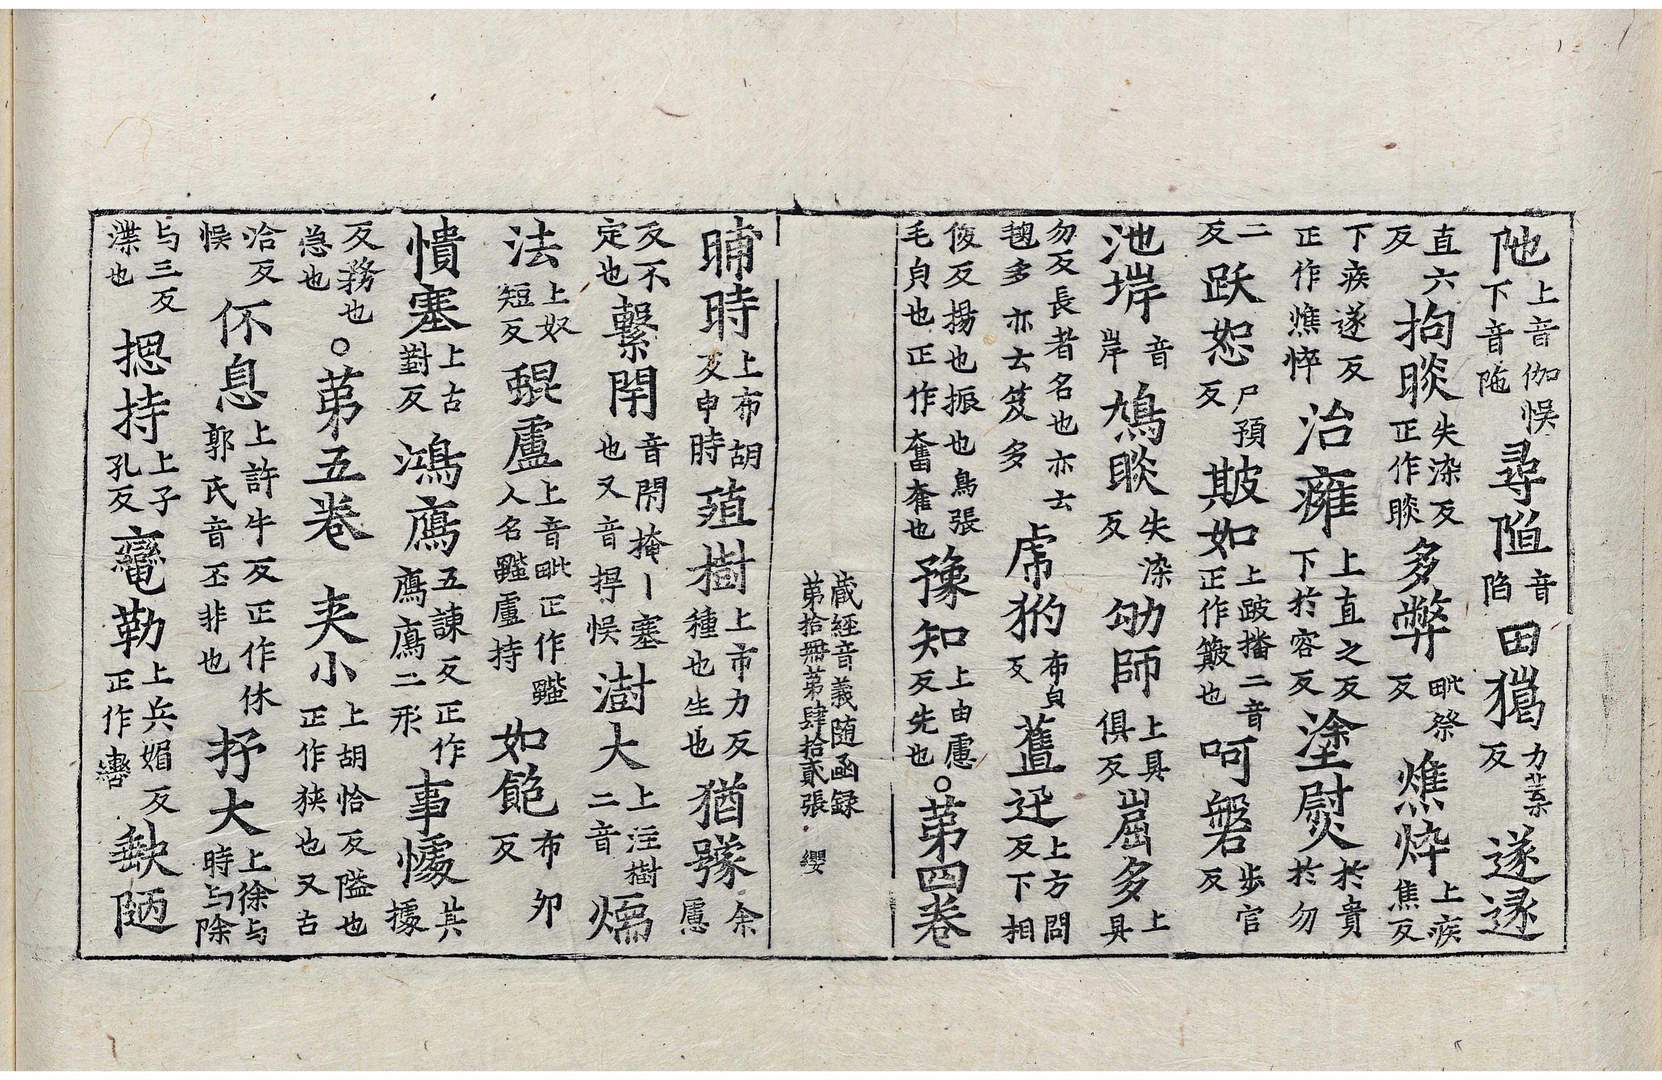 阤上音伽悮下音陁尋䧟音陷田㹸力業反遂𨔶
直六反拘睒失染反正作睒多弊毗祭反燋悴上疾焦反
下疾遂反正作燋悴治癰上直之反下於容反塗熨於貴於勿
二反跃恕尸預反簸如上跛播二音正作簸也呵磐步官反
池垾音岸鳩睒失染反劬師上具俱反崫多上具
勿反長者名也亦云毱多亦云笈多虎豹布皃反蓋迊上方問反下相
俊反揚也振也鳥張毛皃也正作奮奞也豫知上由慮反先也○第四卷
藏經音義随函録
第拾冊第肆拾貳張 纓
晡時上布胡反申時殖樹上市力反種也生也猶豫余慮
反不定也繫閇音閉掩丨塞也又音捍悮澍大上注樹二音㷄
法上奴短反䖟盧上音毗正作䶜人名䶜盧持如飽布卯反
憒塞上古對反鴻鴈五諫反正作鴈鴈二形事懅其據
反務也急也○第五卷 夾小上胡恰反隘也正作狹也又古
洽反悮㤱息上許牛反正作休郭氏音丕非也抒大上徐与時与除
与三反渫也揌持上子孔反鸞勒上兵媚反正作轡缺陋